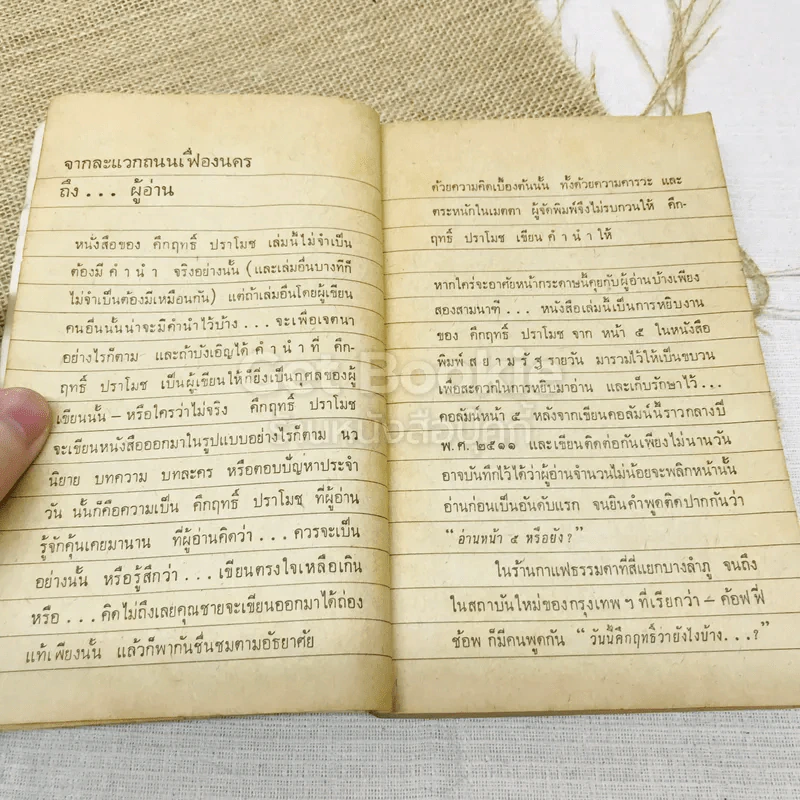 จากละแวกถนนเฟื่องนคร
ถึง ... ผู้อ่าน
หนังสือของ คึกฤทธิ์ ปราโมช เล่มนี้ไม่จำเป็น
ต้องมี คำนำ จริงอย่างนั้น (และเล่มอื่นบางทีก็
ไม่จำเป็นต้องมีเหมือนกัน) แต่ถ้าเล่มอื่นโดยผู้เขียน
คนอื่นนั้นน่าจะมีคำนำไว้บ้าง ... จะเพื่อเจตนา
อย่างไรก็ตาม และถ้าบังเอิญได้ คำนำที่ คึก-
ฤทธิ์ ปราโมช เป็นผู้เขียนให้ก็ยิ่งเป็นกุศลของผู้
เขียนนั้น – หรือใครว่าไม่จริง คึกฤทธิ์ ปราโมช
จะเขียนหนังสือออกมาในรูปแบบอย่างไรก็ตาม นว
นิยาย บทความ บทละคร หรือตอบปัญหาประจำ
วัน นั้นก็คือความเป็น คึกฤทธิ์ ปราโมช ที่ผู้อ่าน
รู้จักคุ้นเคยมานาน ที่ผู้อ่านคิดว่า ... ควรจะเป็น
อย่างนั้น หรือรู้สึกว่า ... เขียนตรงใจเหลือเกิน
หรือ ... คิดไม่ถึงเลยคุณชายจะเขียนออกมาได้ถ่อง
แท้เพียงนั้น แล้วก็พากันชื่นชมตามอัธยาศัย
ด้วยความคิดเบื้องต้นนั้น ทั้งด้วยความคารวะ และ
ตระหนักในเมตตา ผู้จัดพิมพ์จึงไม่รบกวนให้ คึก-
ฤทธิ์ ปราโมช เขียน คำนำ ให้
หากใคร่จะอาศัยหน้ากระดาษนี้คุยกับผู้อ่านบ้างเพียง
สองสามนาที ... หนังสือเล่มนี้เป็นการหยิบงาน
ของ คึกฤทธิ์ ปราโมช จาก หน้า ๕ ในหนังสือ
พิมพ์ สยามรัฐ รายวัน มารวมไว้ให้เป็นขบวน
เพื่อสะดวกในการหยิบมาอ่าน และเก็บรักษาไว้ ...
คอลัมน์หน้า ๕ หลังจากเขียนคอลัมน์นี้ราวกลางปี
พ.ศ. ๒๕๑๑ และเขียนติดต่อกันเพียงไม่นานวัน
อาจบันทึกไว้ได้ว่าผู้อ่านจำนวนไม่น้อยจะพลิกหน้านั้น
อ่านก่อนเป็นอันดับแรก จนยินคำพูดติดปากกันว่า
“อ่านหน้า ๕ หรือยัง?”
ในร้านกาแฟธรรมดาที่สี่แยกบางลำภู จนถึง
ในสถาบันใหม่ของกรุงเทพ ฯ ที่เรียกว่า – ค้อฟฟี่
ช้อพ ก็มีคนพูดกัน “วันนี้คึกฤทธิ์ว่ายังไงบ้าง...?”